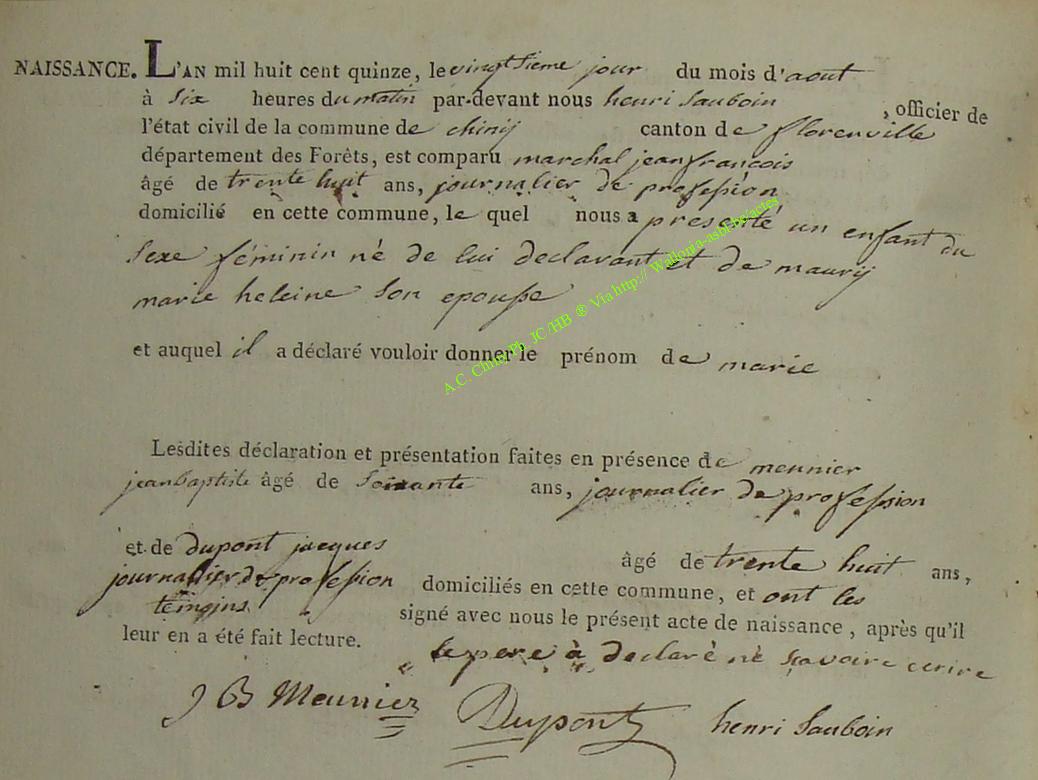 NAISSANCE. L'AN mil huit cent quinze, le vingtsieme jour du mois d'aout
à six heures du matin par-devant nous henri Sauboin , officier de
l'état civil de la commune de chinij canton de florenville
département des Forêts, est comparu marchal jean francois
âgé de trente huit ans, journalier de profession
domicilié en cette commune, le quel nous a presenté un enfant du
Sexe féminin né de lui declarant et de maurij
marie heleine Son epouse
et auquel il a déclaré vouloir donner le prénom de marie
Lesdites déclaration et présentation faites en présence de meunier
jean baptiste âgé de Soixante ans, journalier de profession
et de dupont jacques âgé de trente huit ans,
journallier de profession domiciliés en cette commune, et ont les
temoins signé avec nous le présent acte de naissance, après qu'il
leur en a été fait lecture. le pere à declaré né sçavoire ecrire
J B Meunier Dupont henri Sauboin
A.C. Chiny Ph. JC /HB ® Via http:// Wallonia-asbl-be/actes